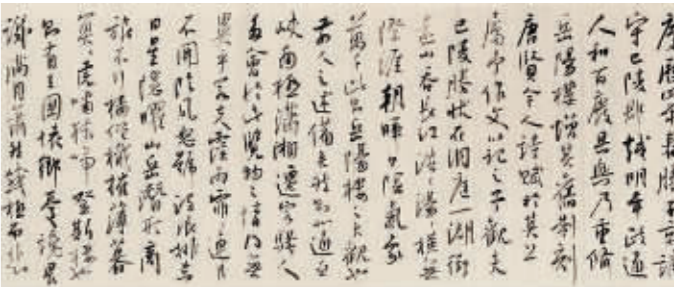 慶曆四年春滕子京謫
守巴陵郡越明年政通
人和百廢具興乃重脩
岳陽樓增其舊制刻
唐賢今人詩賦於其上
屬予作文以記之予觀夫
巴陵勝狀在洞庭一湖銜
遠山吞長江浩浩湯湯橫無
際涯朝暉夕陰氣象
萬千此則岳陽樓之大觀也
前人之述備矣然則北通巫
峽南極瀟湘遷客騷人
多會於此覽物之情得無
異乎若夫霪雨霏霏連月
不開陰風怒號濁浪排空
日星隱曜山岳潛形商
旅不行檣傾楫摧薄暮
冥冥虎嘯猿啼登斯樓也
則有去國懷鄉憂讒畏
譏滿目蕭然感極而悲